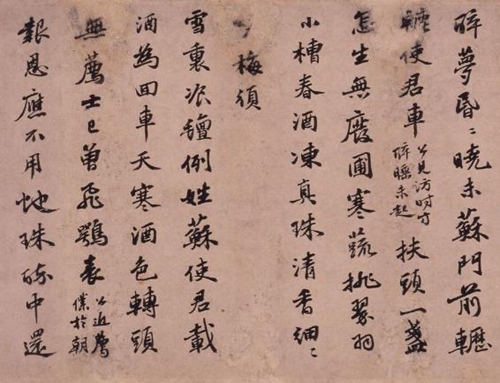 醉夢昏〻曉未蘇門前轣
轆使君車公見訪時方醉睡未起扶頭一盞
怎生無廢圃寒蔬挑翠羽
小槽春酒凍真珠清香細〻
梅須
雪裏飡氊例姓蘇使君載
酒為回車天寒酒色轉頭
無薦士已曾飛鶚表公近薦僕於朝
報恩應不用虵珠醉中還